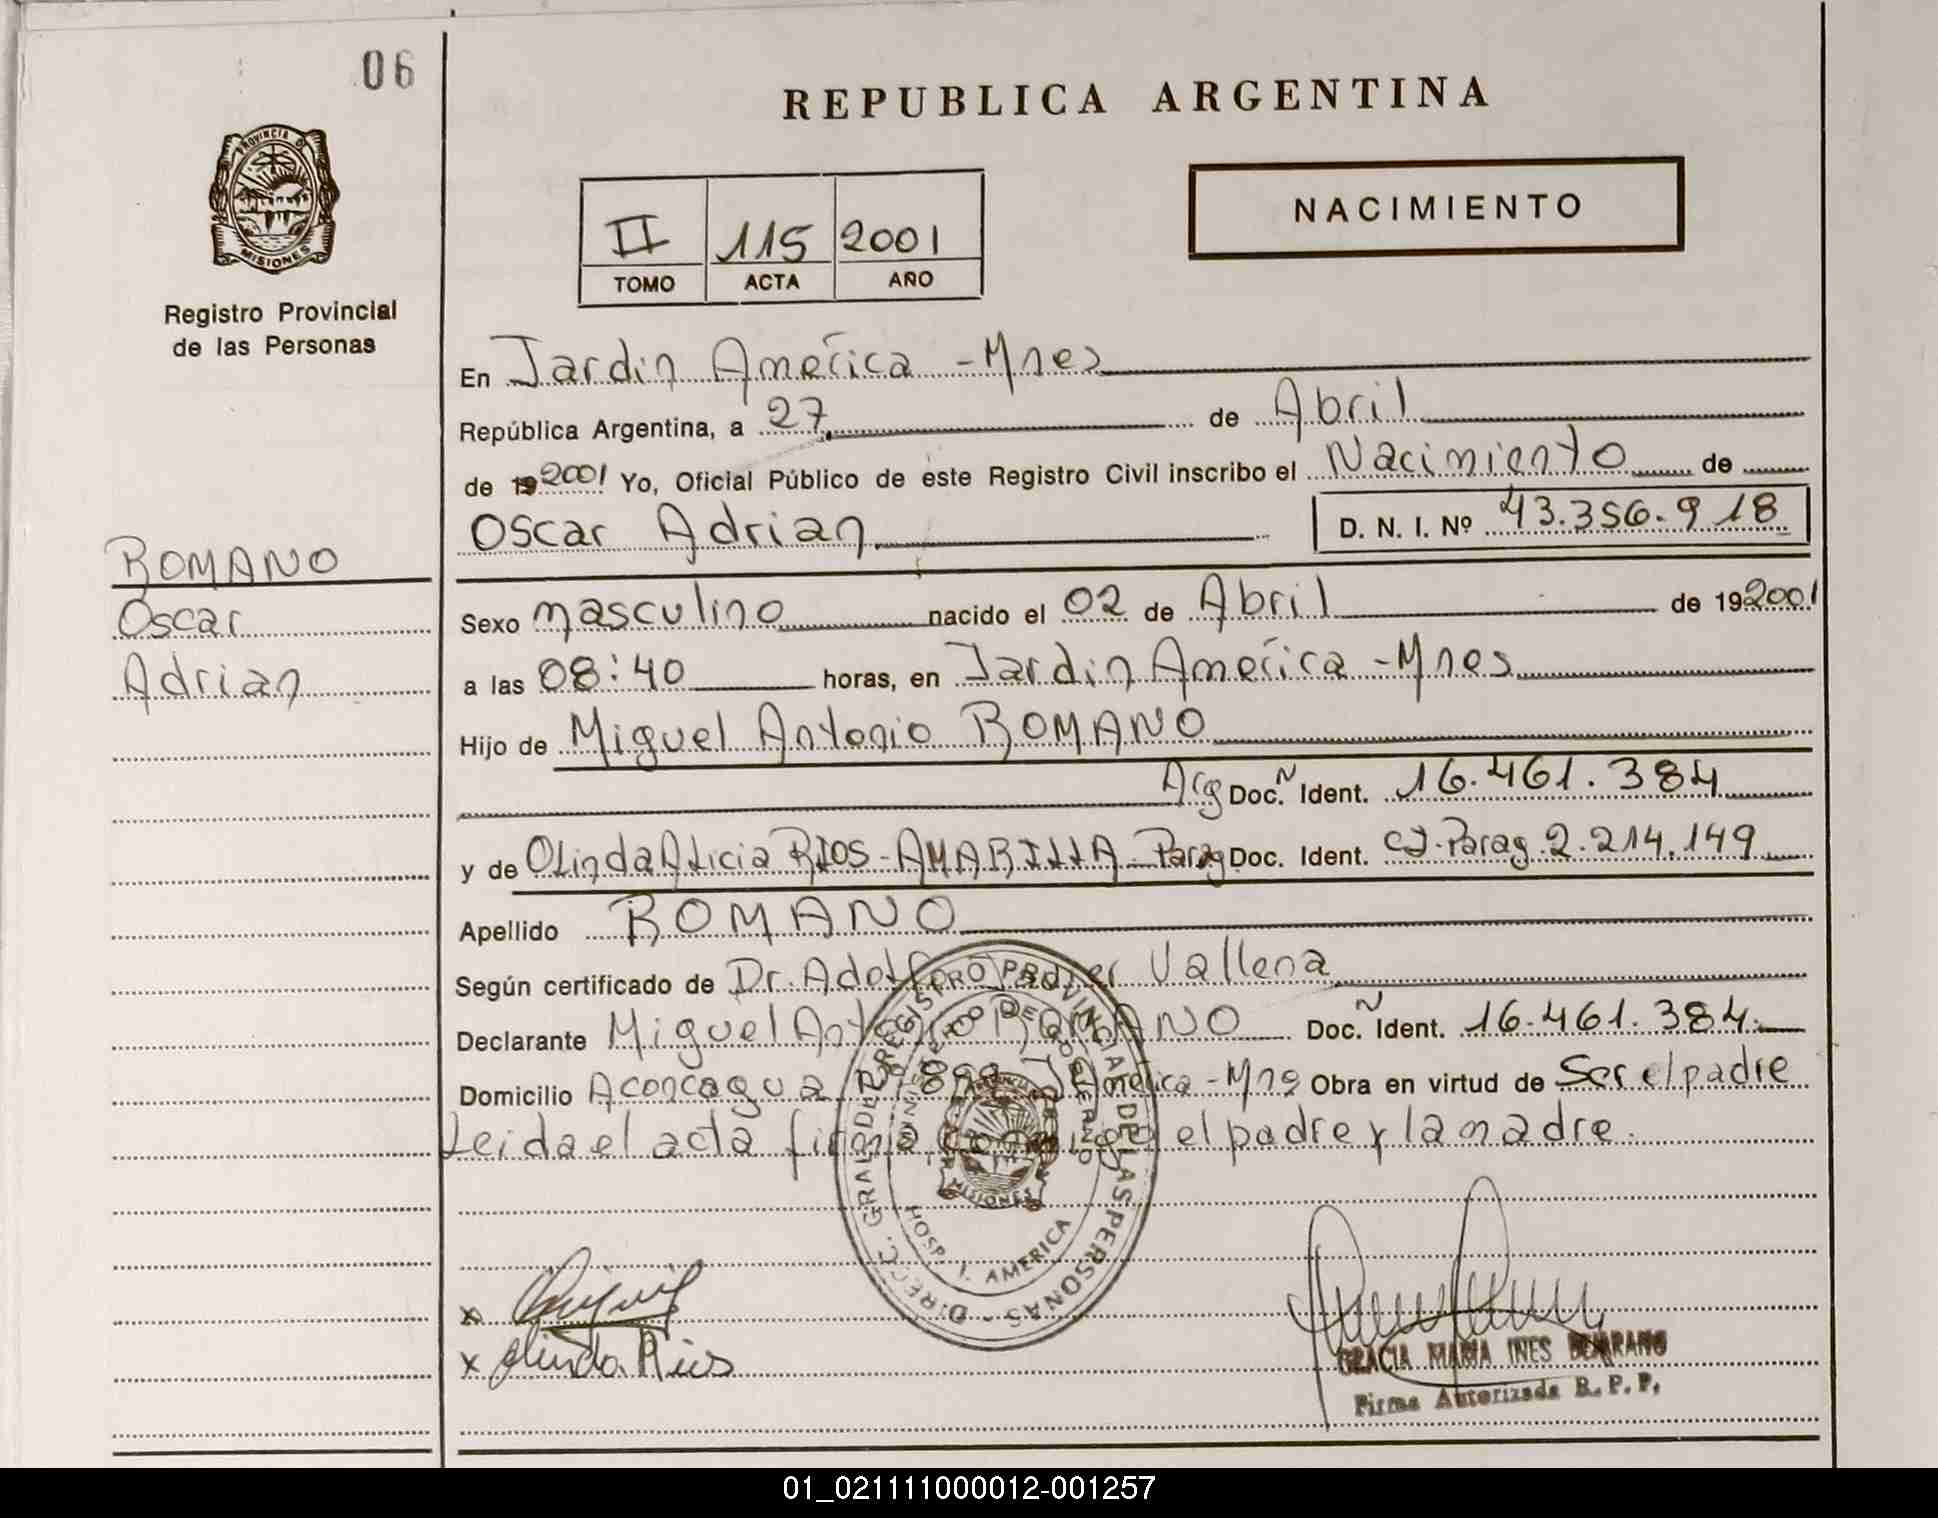 06
REPUBLICA ARGENTINA
PROVINCIA DE
MISIONES
Registro Provincial
de las Personas
II 115 2001
TOMO ACTA AÑO
NACIMIENTO
En Jardin América - Mnes
República Argentina, a 27 de Abril
de 19 2001 Yo, Oficial Público de este Registro Civil inscribo el Nacimiento de
Oscar Adrian D. N. I. Nº 43.356.918
ROMANO
Oscar
Adrian
Sexo masculino nacido el 02 de Abril de 192001
a las 08:40 horas, en Jardin América - Mnes
Hijo de Miguel Antonio ROMANO
Arg Doc. Ñ Ident. 16.461.384
y de Olinda Alicia RIOS - AMARILLA - Parag Doc. Ident. CI. Parag. 2.214.149
Apellido ROMANO
Según certificado de Dr. Vallena
Declarante Miguel Antonio ROMANO Doc. Ñ Ident. 16.461.384
Domicilio Aconcagua J. América - Mns Obra en virtud de Ser el padre
Leida el acta firma el padre y la madre.
DIRECC. GRAL. DE REGISTRO PROVINCIAL DE LAS PERSONAS
MINISTERIO DE GOBIERNO
MISIONES
HOSP. J. AMERICA
x Miguel
x Olinda Rios
GRACIA MARIA INES
Firma Autorizada R. P. P.
01_021111000012-001257